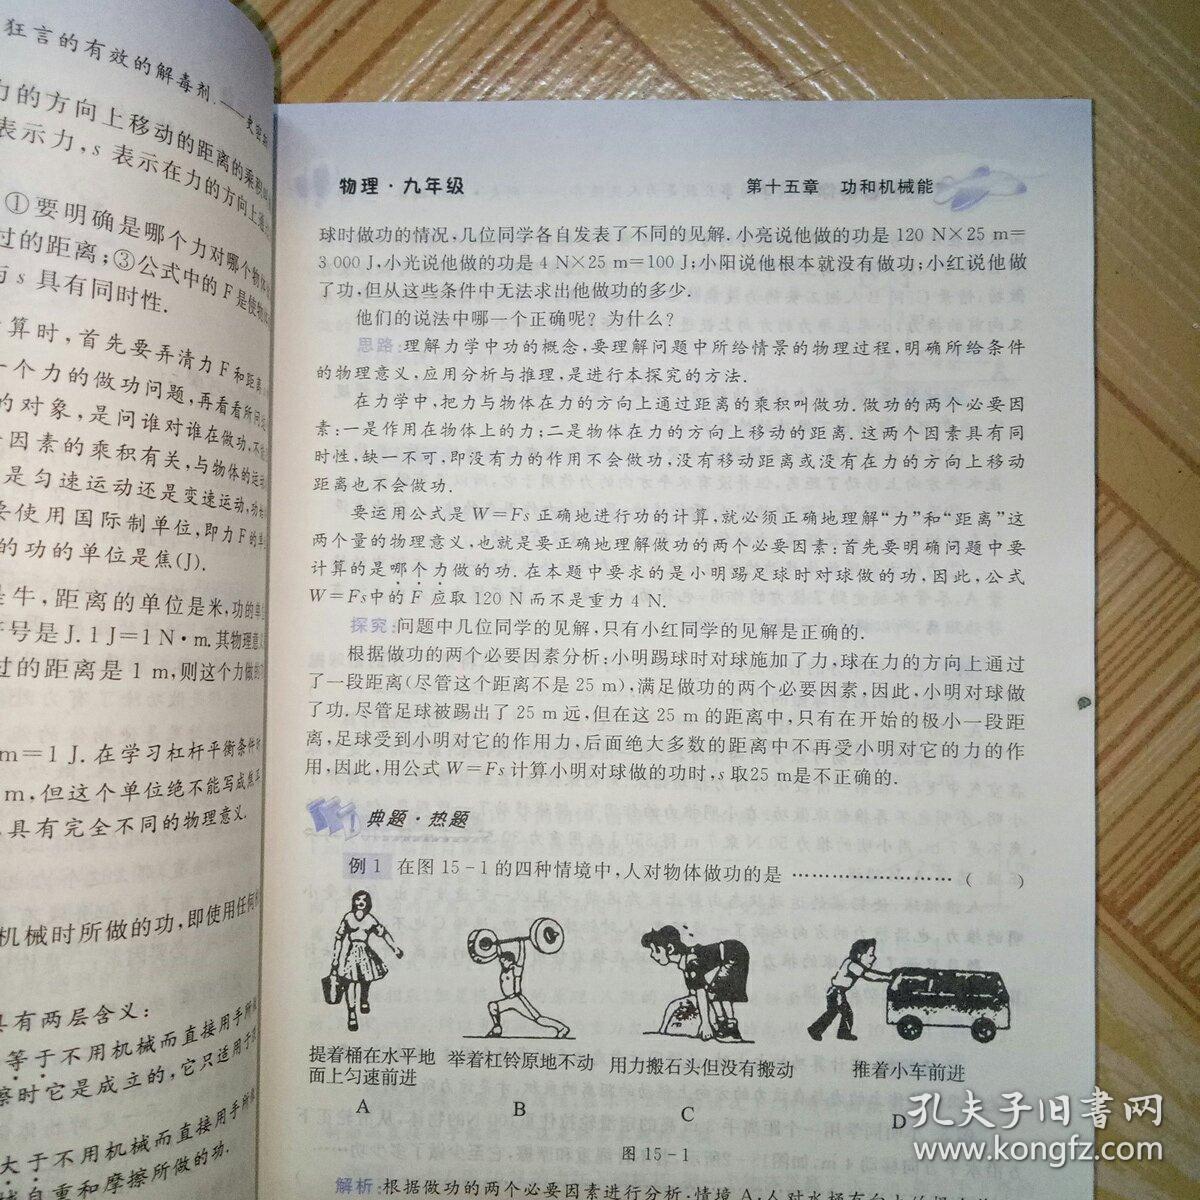 狂言的有效的解毒剂.——史密斯
力的方向上移动的距离的乘积
表示力,s 表示在力的方向上通过
①要明确是哪个力对哪个物体
过的距离;③公式中的 F 是使物体
与 s 具有同时性.
算时,首先要弄清力 F 和距离
一个力的做功问题,再看看所问
的对象,是问谁对谁在做功,不
因素的乘积有关,与物体的运动
是匀速运动还是变速运动,动
要使用国际制单位,即力 F 的单
的功的单位是焦(J).
是牛,距离的单位是米,功的单
符号是 J.1 J=1 N·m.其物理意
过的距离是 1 m,则这个力做的
m=1 J.在学习杠杆平衡条件时
m,但这个单位绝不能写成焦耳
具有完全不同的物理意义.
机械时所做的功,即使用任何
具有两层含义:
等于不用机械而直接用手所
擦时它是成立的,它只适用于
大于不用机械而直接用手所
自重和摩擦所做的功.
物理·九年级
第十五章 功和机械能
球时做功的情况,几位同学各自发表了不同的见解.小亮说他做的功是 120 N×25 m=
3 000 J,小光说他做的功是 4 N×25 m=100 J;小阳说他根本就没有做功;小红说他做
了功,但从这些条件中无法求出他做功的多少.
他们的说法中哪一个正确呢?为什么?
思路:理解力学中功的概念,要理解问题中所给情景的物理过程,明确所给条件
的物理意义,应用分析与推理,是进行本探究的方法.
在力学中,把力与物体在力的方向上通过距离的乘积叫做功.做功的两个必要因
素:一是作用在物体上的力;二是物体在力的方向上移动的距离.这两个因素具有同
时性,缺一不可,即没有力的作用不会做功,没有移动距离或没有在力的方向上移动
距离也不会做功.
要运用公式是 W=Fs 正确地进行功的计算,就必须正确地理解“力”和“距离”这
两个量的物理意义,也就是要正确地理解做功的两个必要因素:首先要明确问题中要
计算的是哪个力做的功.在本题中要求的是小明踢足球时对球做的功,因此,公式
W=Fs中的 F 应取 120 N 而不是重力 4 N.
探究:问题中几位同学的见解,只有小红同学的见解是正确的.
根据做功的两个必要因素分析:小明踢球时对球施加了力,球在力的方向上通过
了一段距离(尽管这个距离不是 25 m),满足做功的两个必要因素,因此,小明对球做
了功.尽管足球被踢出了 25 m 远,但在这 25 m 的距离中,只有在开始的极小一段距
离,足球受到小明对它的作用力,后面绝大多数的距离中不再受小明对它的力的作
用,因此,用公式 W=Fs 计算小明对球做的功时,s 取25 m是不正确的.
典题·热题
例 1 在图 15-1 的四种情境中,人对物体做功的是 …………………… ( )
提着桶在水平地
面上匀速前进
举着杠铃原地不动
用力搬石头但没有搬动
推着小车前进
A
B
C
D
图 15-1
解析:根据做功的两个必要因素进行分析:情境 A:人对水桶有向上的
孔夫子旧书网
www.kongfz.com